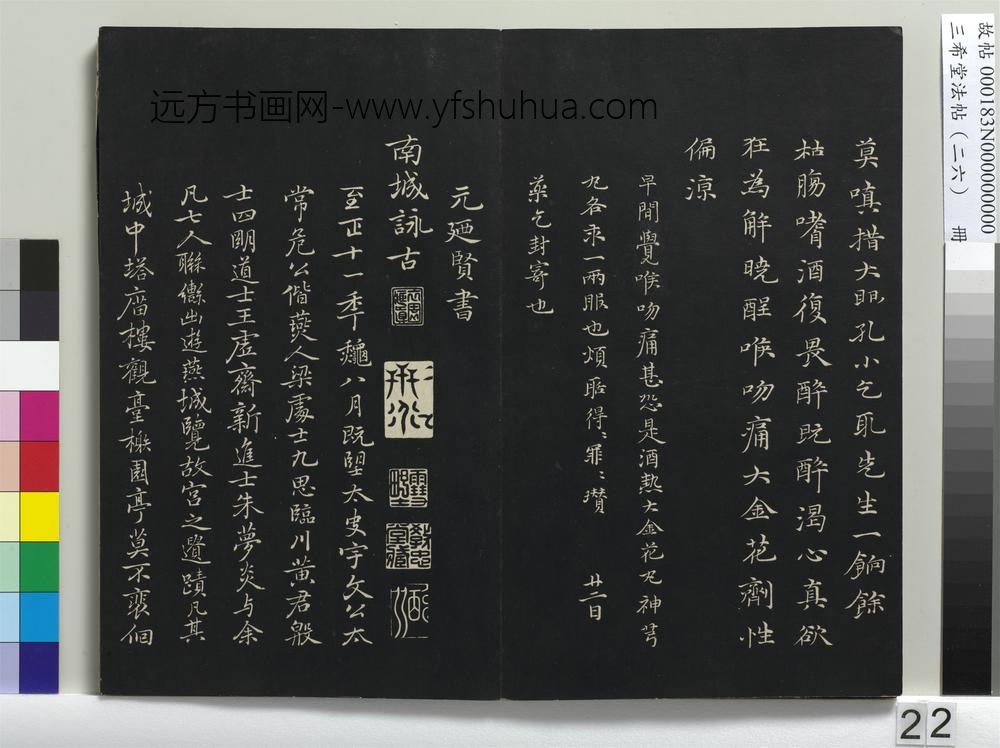 远方书画网-www.yfshuhua.com
故帖000183N000000000
三希堂法帖(二六) 冊
莫嗔措大眠孔小乞取先生一餉餘
枯腸嗜酒復畏醉既醉渴心真欲
狂為解曉酲喉吻痛大金花劑性
偏涼
早間覺喉吻痛甚恐是酒熱大金花丸神芎
丸各求一兩服也煩聒得〻罪〻瓚 廿二日
藥乞封寄也
元廼賢書
南城詠古
至正十一年龝八月既望太史宇文公太
常危公偕燕人梁處士九思臨川黃君殷
士四明道士王虛齋新進士朱夢炎与余
凡七人聯轡出遊燕城覽故宮之遺蹟凡其
城中塔廟樓觀臺榭園亭莫不裵徊
22